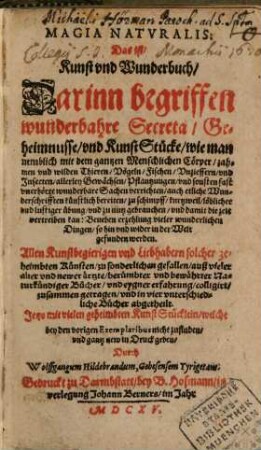 MAGIA NATVRALIS;
Das ist/
Kunst vnd Wunderbuch/
Darinn begriffen
wunderbahre Secreta/ Ge-
heimnusse/ vnd Kunst Stücke/ wie man
nemblich mit dem gantzen Menschlichen Cörper/ zah-
men vnd wilden Thieren/ Vögeln/ Fischen/ Vnziffern/ vnd
Insecten/ allerley Gewächsen/ Pflantzungen/ vnd sonsten fast
vnerhörte wunderbare Sachen verrichten/ auch etliche Wun-
derschrifften künstlich bereiten/ zu schimpff/ kurtzweil/ löblicher
vnd lustiger übung/ vnd zu nutz gebrauchen/ vnd damit die zeit
vertreiben kan: Beneben erzehlung vieler wunderlichen
Dingen/ so hin vnd wider in der Welt
gefunden werden.
Allen Kunstbegierigen vnd Liebhabern solcher ge-
heimbten Künsten/ zu sonderlichen gefallen/ auß vieler
alter vnd newer ärtzte/ berümbter vnd bewährter Na-
turkündiger Bücher/ vnd eygner erfahrung/ colligirt/
zusammen getragen/ vnd in vier vnterschied-
liche Bücher abgetheilt.
Jetzo mit vielen geheimbten Kunst Stücklein/ welche
bey den vorigen Exemplaribus nicht zufinden/
vnd gantz new in Druck geben/
Durch
Wolffgangum Hildebrandum, Gebesensem Tyrigetam.
Gedruckt zu Darmbstatt/ bey B. Hofmann/ in
verlegung Johann Berners/ im Jahr
MDCXV.